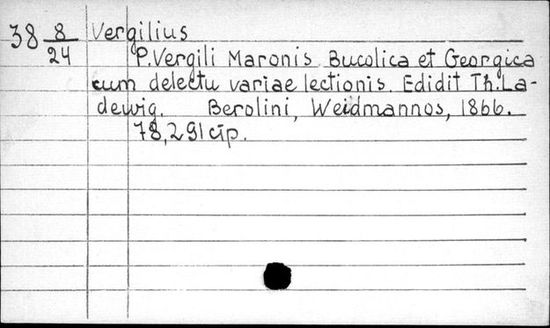 38 8/24 Vergilius
P. Vergili Maronis Bucolica et Georgica
cum delectu variae lectionis. Edidit Th. La-
dewig. Berolini, Weidmannos, 1866.
78, 291 стр.